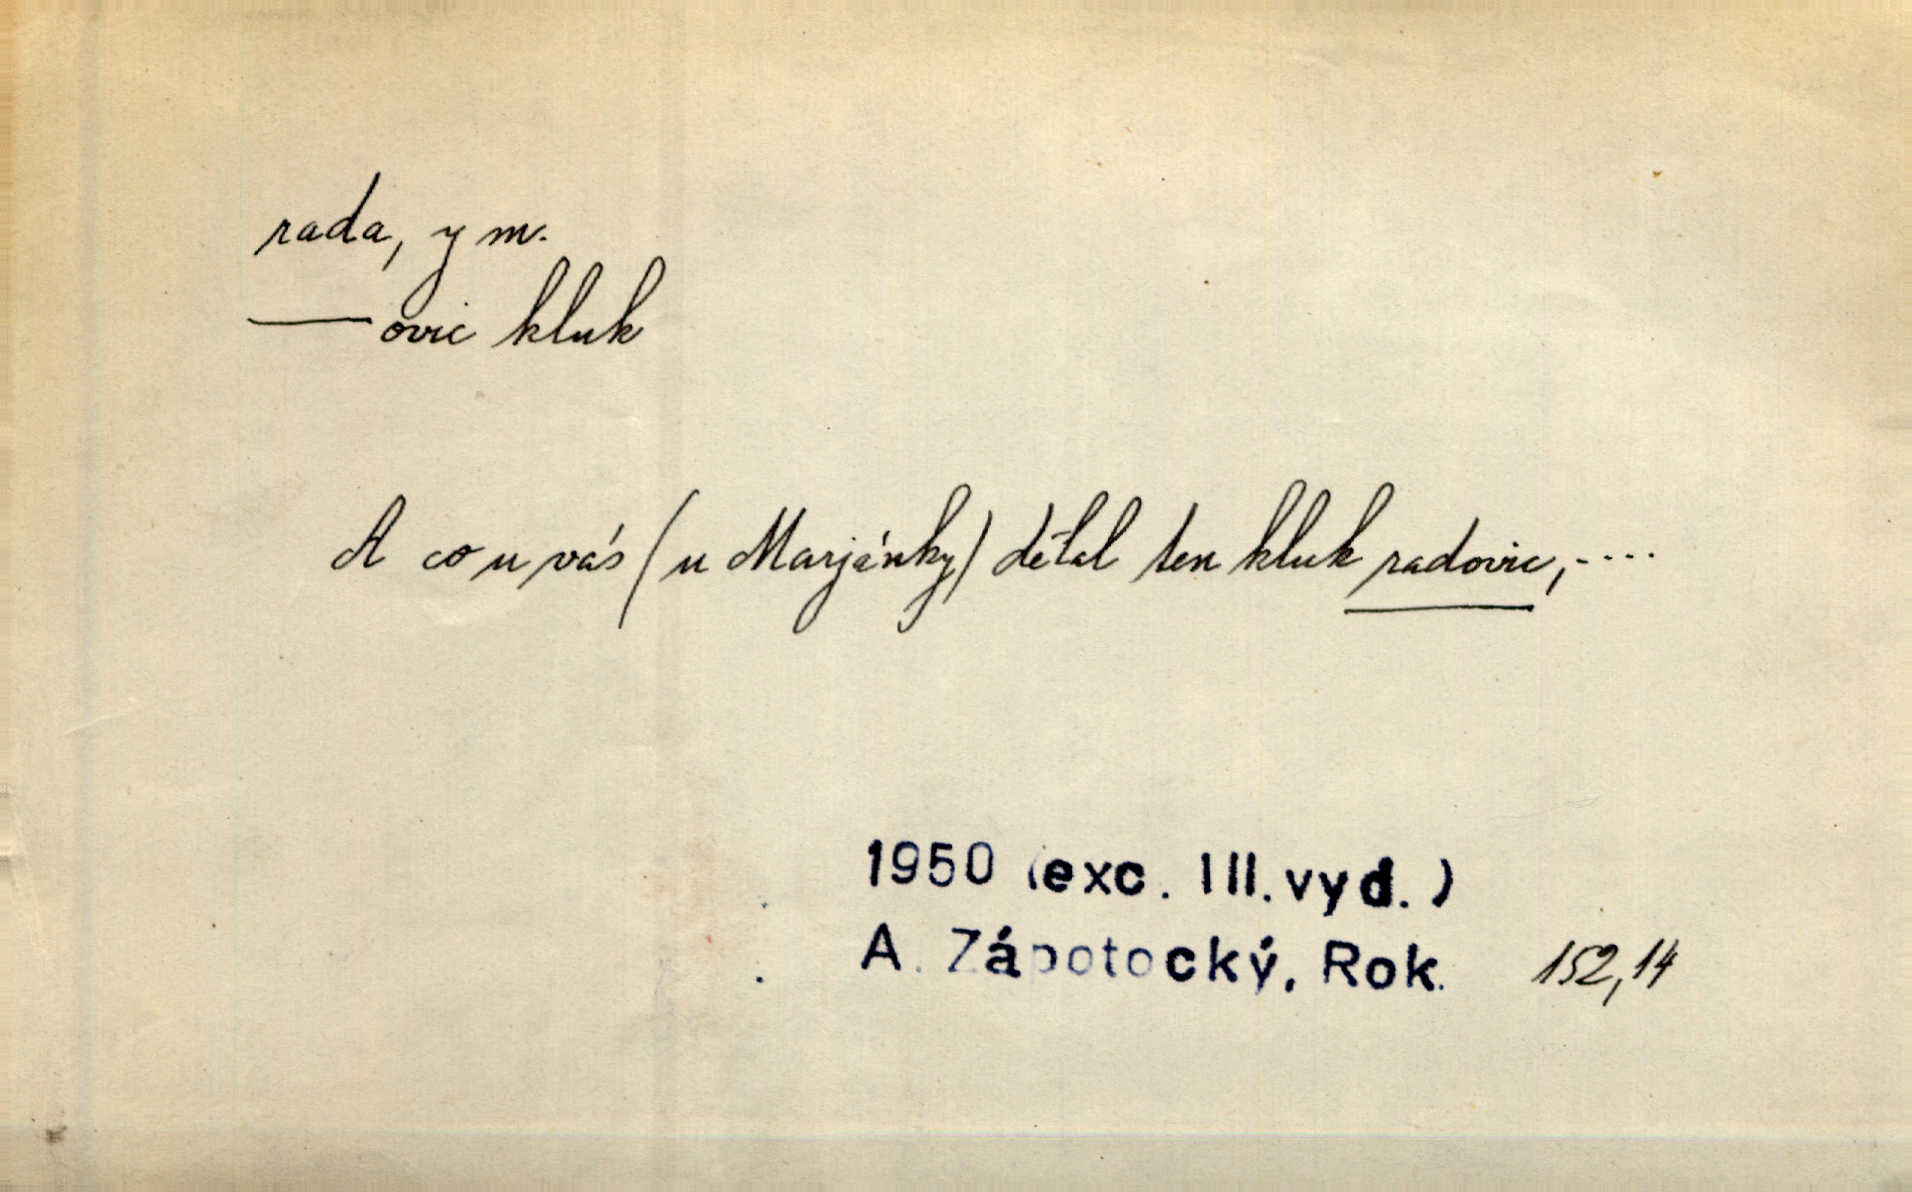 rada, y m.
—ovic kluk
A co u vás (u Marjánky) dělal ten kluk radovic, ....
1950 (exc. III. vyd.)
A. Zápotocký, Rok. 152,14